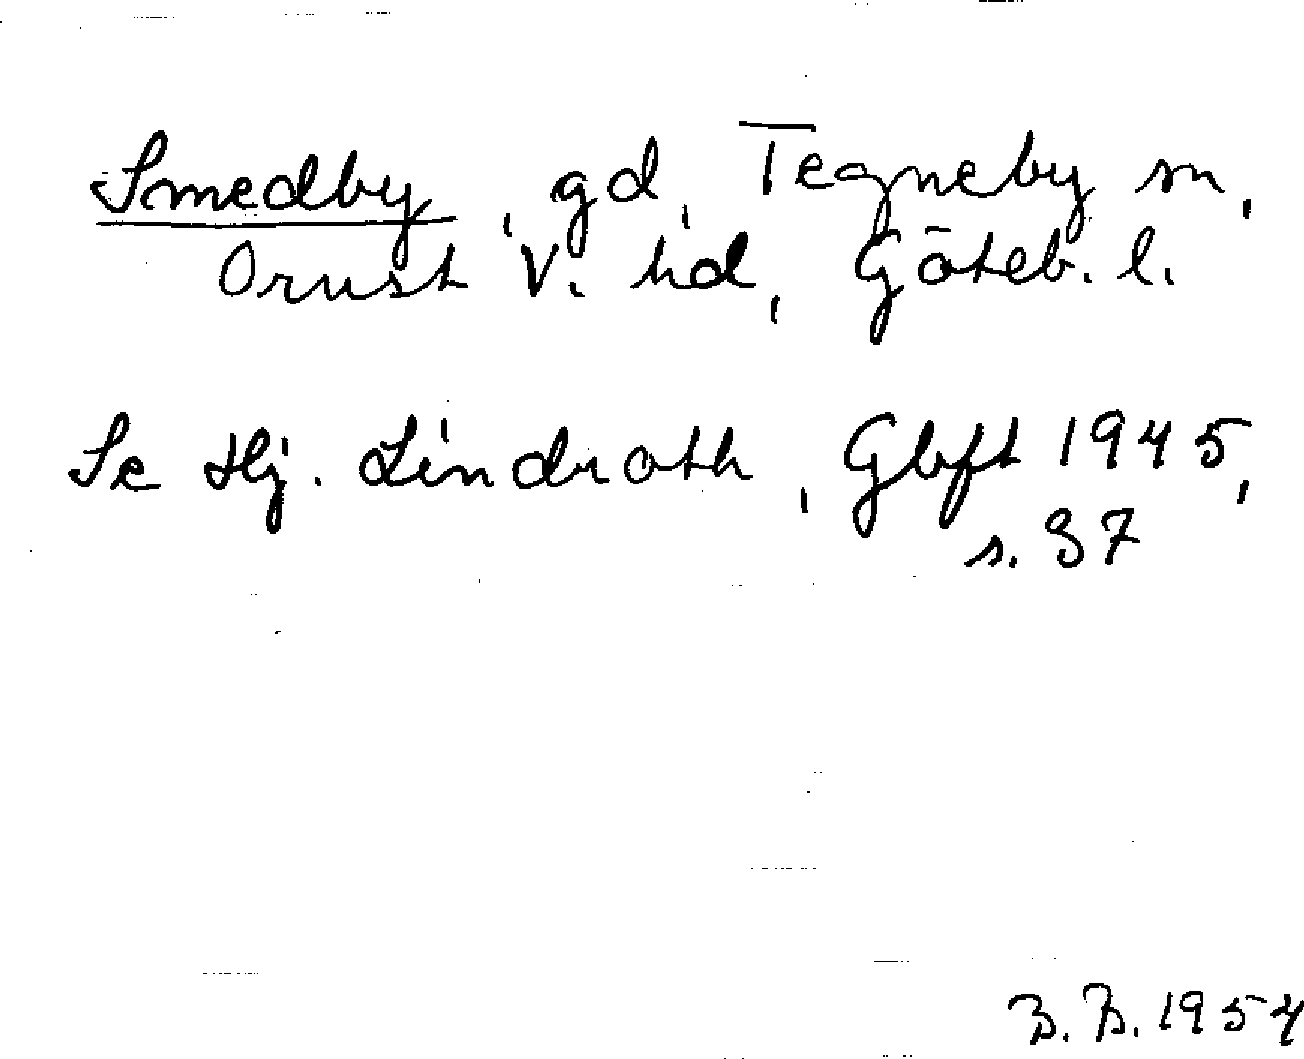 Smedby, gd, Tegneby sn,
Orust V. hd, Göteb. l.
Se Hj. Lindroth, Gbft 1945,
s. 37
B. B. 1954